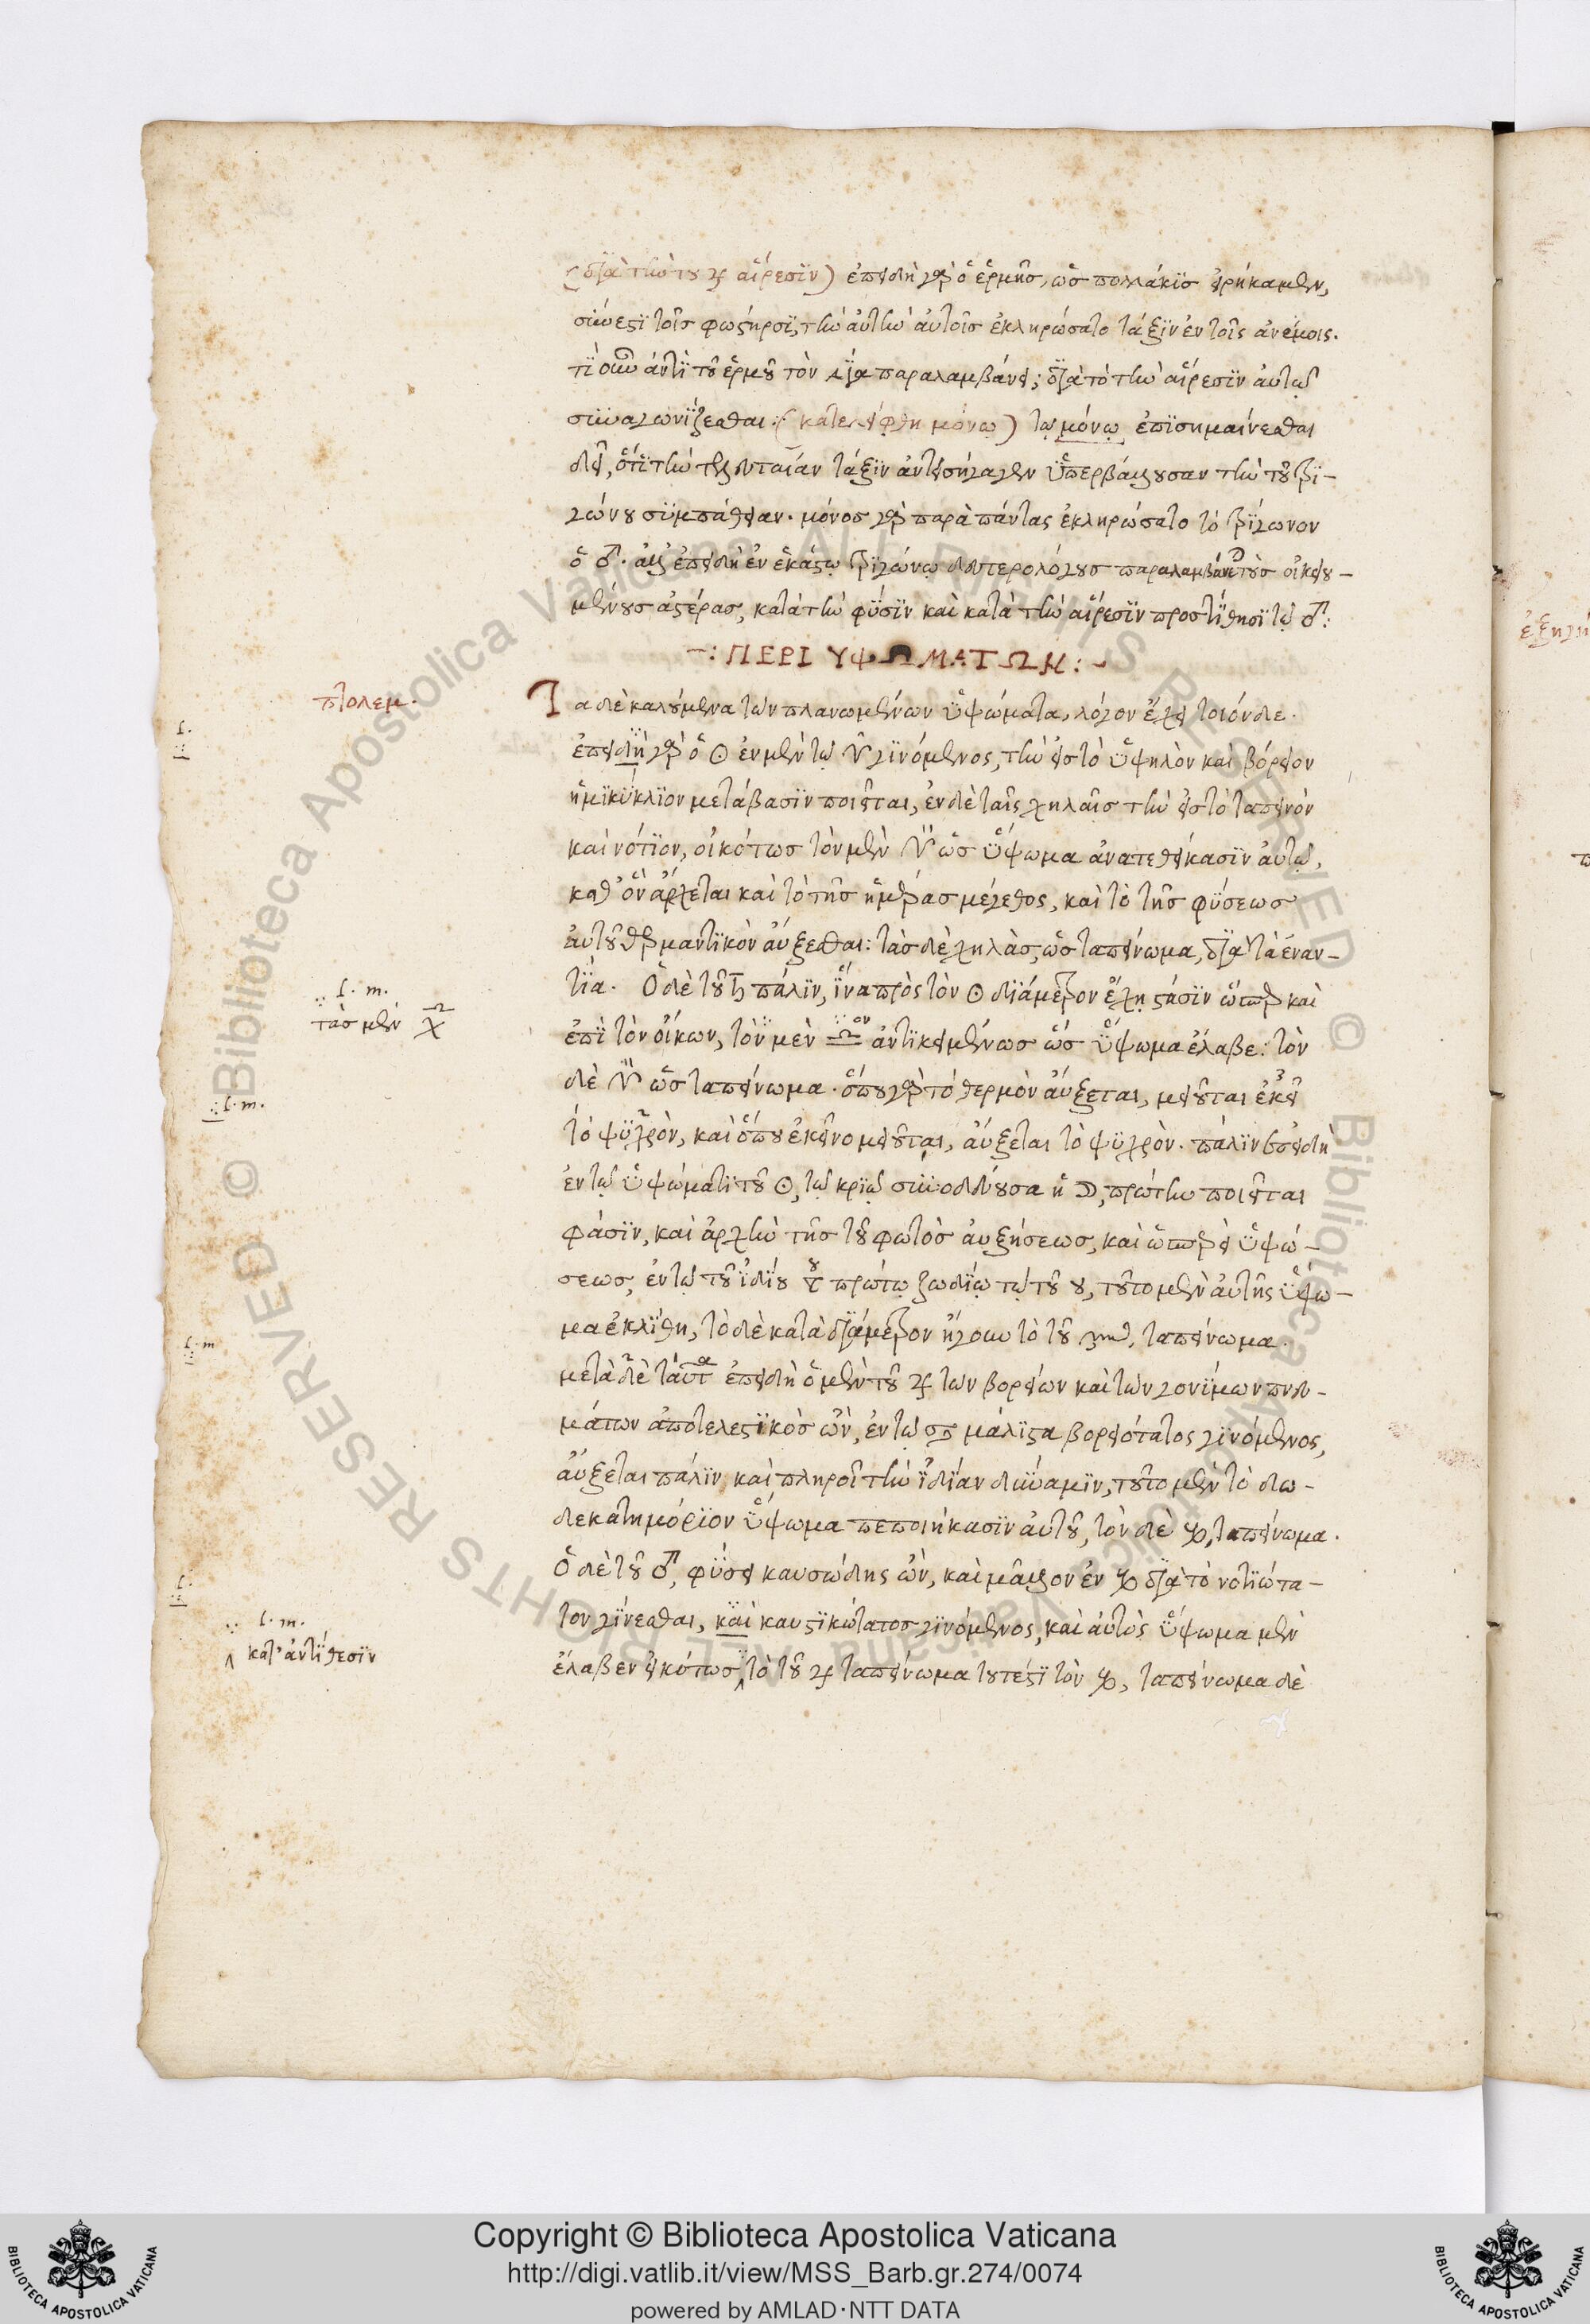 (διὰ τὴν τοῦ ♃ αἵρεσιν) ἐπειδὴ γὰρ ὁ ἑρμῆς, ὡς πολλάκις εἰρήκαμεν,
σύνεστι τοῖς φωστῆρσι, τὴν αὐτὴν αὐτοῖς ἐκληρώσατο τάξιν ἐν τοῖς ἀνέμοις.
τί οὖν ἀντὶ τοῦ ἑρμοῦ τὸν δία παραλαμβάνει; διὰ τὸ τὴν αἵρεσιν αὐτῷ
συναγωνίζεσθαι. (κατελείφθη μόνῳ) τῷ μόνῳ ἐπισημαίνεσθαι
δεῖ, ὅτι τὴν τελευταίαν τάξιν ἀντεισήγαγεν ὑπερβάλλουσαν τὴν τοῦ τρι-
γώνου συμπάθειαν. μόνος γὰρ παρὰ πάντας ἐκληρώσατο τὸ τρίγωνον
ὁ ♂. ἀλλ' ἐπειδὴ ἐν ἑκάστῳ τριγώνῳ δευτερολόγους παραλαμβάνει τοὺς οἰκειου-
μένους ἀστέρας, κατὰ τὴν φύσιν καὶ κατὰ τὴν αἵρεσιν προστίθησι τῷ ♂:
~: ΠΕΡΙ ΥΨΩΜΑΤΩΝ: ~
πτολεμ.
Τα δὲ καλούμενα τῶν πλανωμένων ὑψώματα, λόγον ἔχει τοιόνδε.
ἐπειδὴ γὰρ ὁ ☉ ἐν μὲν τῷ ♈ γινόμενος, τὴν εἰς τὸ ὑψηλὸν καὶ βόρειον
ἡμικύκλιον μετάβασιν ποιεῖται, ἐν δὲ ταῖς χηλαῖς τὴν εἰς τὸ ταπεινὸν
καὶ νότιον, οἰκότως τὸν μὲν ♈ ὡς ὕψωμα ἀνατεθείκασιν αὐτῷ,
καθ' ὃν ἄρχεται καὶ τὸ τῆς ἡμέρας μέγεθος, καὶ τὸ τῆς φύσεως
αὐτοῦ θερμαντικὸν αὔξεσθαι: τὰς δὲ χηλὰς, ὡς ταπείνωμα, διὰ τὰ ἐναν-
τία. Ὁ δὲ τοῦ ♄ πάλιν, ἵνα πρὸς τὸν ☉ διάμετρον ἔχῃ στάσιν ὥσπερ καὶ
l. m.
τὰς μὲν
ἐπὶ τὸν οἴκων, τὸν μὲν ♎ον ἀντικειμένως ὡς ὕψωμα ἔλαβε: τὸν
δὲ ♈ ὡς ταπείνωμα. ὅπου γὰρ τὸ θερμὸν αὔξεται, μειοῦται ἐκεῖ
l. m.
τὸ ψυχρὸν, καὶ ὅπου ἐκεῖνο μειοῦται, αὔξεται τὸ ψυχρὸν. πάλιν ἐπειδὴ
ἐν τῷ ὑψώματι τοῦ ☉, τῷ κριῷ συνοδεύουσα ἡ ☽, πρώτην ποιεῖται
φάσιν, καὶ ἀρχὴν τῆς τοῦ φωτὸς αὐξήσεως, καὶ ὡσπερεὶ ὑψώ-
σεως, ἐν τῷ τοῦ ἰδίου τριγώνου πρώτῳ ζωδίῳ τῷ τοῦ ♉, τοῦτο μὲν αὐτῆς ὕψω-
l. m
μα ἐκλίθη, τὸ δὲ κατὰ διάμετρον ἤγουν τὸ τοῦ ♏, ταπείνωμα.
μετὰ δὲ ταῦτα ἐπειδὴ ὁ μὲν τοῦ ♃ τῶν βορείων καὶ τῶν γονίμων πνευ-
μάτων ἀποτελεστικὸς ὢν, ἐν τῷ ♋ μάλιστα βορειότατος γινόμενος,
αὔξεται πάλιν καὶ πληροῖ τὴν ἰδίαν δύναμιν, τοῦτο μὲν τὸ δω-
δεκατημόριον ὕψωμα πεποιήκασιν αὐτοῦ, τὸν δὲ ♑, ταπείνωμα.
Ὁ δὲ τοῦ ♂, φύσει καυσώδης ὢν, καὶ μᾶλλον ἐν ♑ διὰ τὸ νοτιώτα-
τον γίνεσθαι, καὶ καυστικώτατος γινόμενος, καὶ αὐτὸς ὕψωμα μὲν
l. m.
κατ' ἀντίθεσιν
ἔλαβεν εἰκότως, τὸ τοῦ ♃ ταπείνωμα τουτέστι τὸν ♑, ταπείνωμα δὲ
Copyright © Biblioteca Apostolica Vaticana
http://digi.vatlib.it/view/MSS_Barb.gr.274/0074
powered by AMLAD·NTT DATA